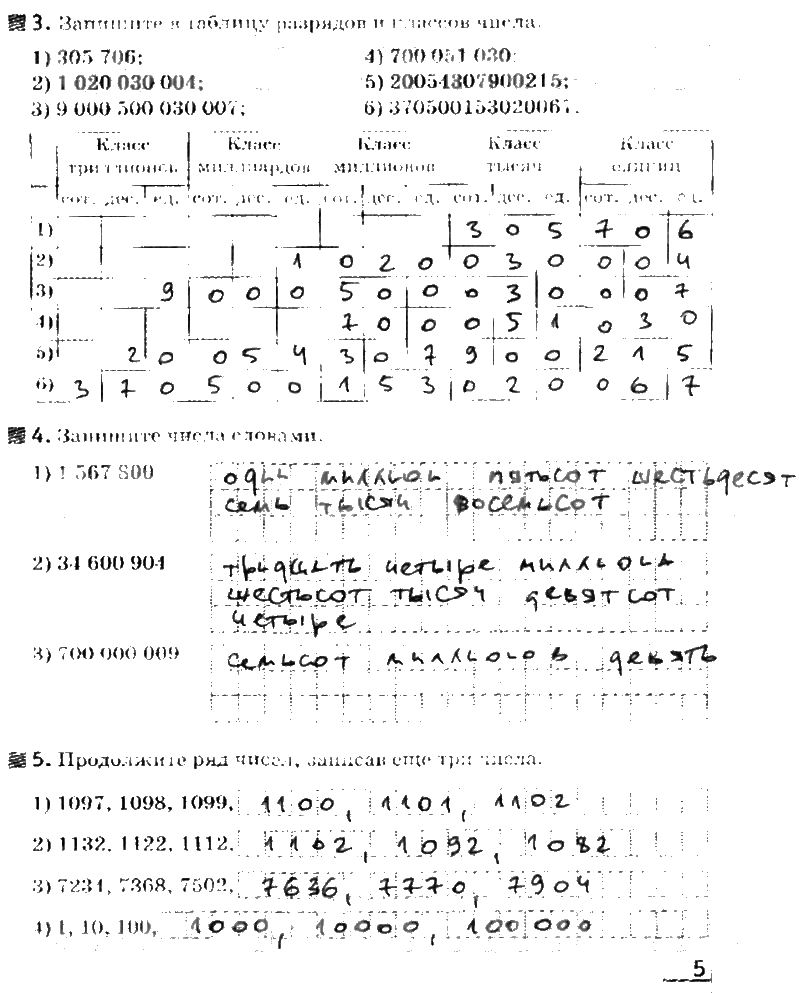 3. Запишите в таблицу разрядов и классов числа.
1) 305 706; 4) 700 051 030;
2) 1 020 030 004; 5) 20054307900215;
3) 9 000 500 030 007; 6) 370500153020067.
Класс Класс Класс Класс Класс
триллионов миллиардов миллионов тысяч единиц
сот. дес. ед. сот. дес. ед. сот. дес. ед. сот. дес. ед. сот. дес. ед.
1) 3 0 5 7 0 6
2) 1 0 2 0 0 3 0 0 0 4
3) 9 0 0 0 5 0 0 0 3 0 0 0 7
4) 7 0 0 0 5 1 0 3 0
5) 2 0 0 5 4 3 0 7 9 0 0 2 1 5
6) 3 7 0 5 0 0 1 5 3 0 2 0 0 6 7
4. Запишите числа словами.
1) 1 567 800 один мильон пятьсот шестьдесят
семь тысяч восемьсот
2) 34 600 904 тридцать четыре мильона
шестьсот тысяч девятсот
четыре
3) 700 000 009 семьсот мильонов девять
5. Продолжите ряд чисел, записав еще три числа.
1) 1097, 1098, 1099, 1100, 1101, 1102
2) 1132, 1122, 1112, 1102, 1092, 1082
3) 7234, 7368, 7502, 7636, 7770, 7904
4) 1, 10, 100, 1000, 10000, 100000
5